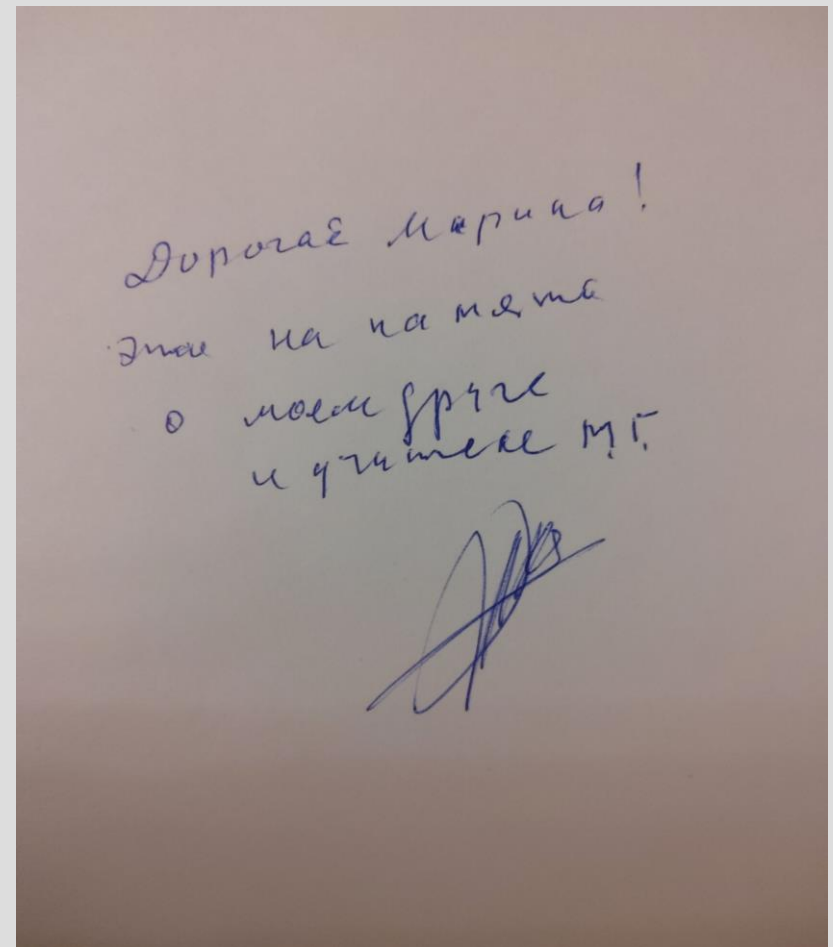 Дорогая Марина!
Это на память
о моем друге
и учителе М.Г.